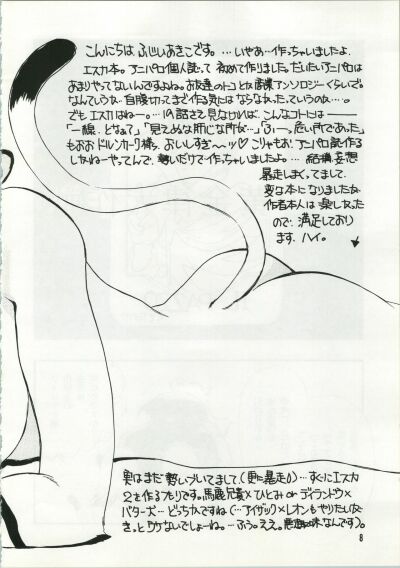 こんにちは ふじいあきこです。…いやあ…作っちゃいましたよ
エスカ本。アニパロ個人誌って 初めて作りました。だいたいアニパロは
あまりやってないんですよね。お友達のトコとか商業アンソロジーぐらいで。
なんていうか 自腹切ってまで作る気にはならなかったっていうのか……。
でも エスカはねー。…19話さえ見なければ、こんなコトには――
もおお ドルンカーク様、おいしすぎ〜ッ♡ こりゃもお、アニパロ誌作る
しかねーやってんで、勢いだけで作っちゃいましたよ。… 結構 妄想
暴走しまくってまして
変な本に なりましたが
作者本人は 楽しかった
ので、満足しており
ます。ハイ。
実はまだ 勢いづいてまして(更に暴走か)…すぐにエスカ
2を作るつもりです。馬鹿兄貴×ひとみ or ディランドウ×
バターズ… どっちかですね(…アイザック×レオンもやりたいなぁ
8